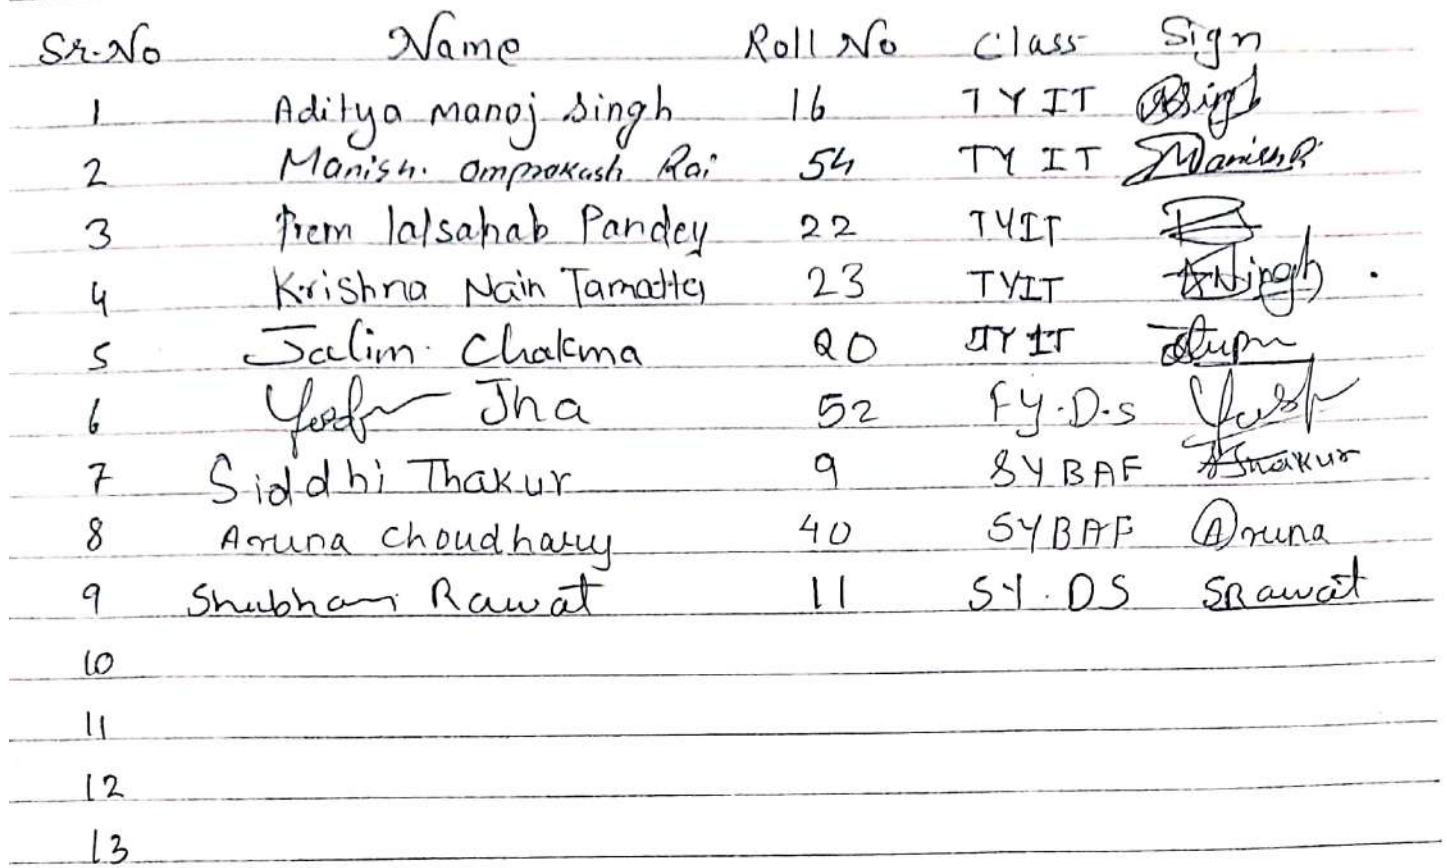 Sr.No Name Roll No Class Sign
1 Aditya manoj singh 16 TYIT
2 Manish. omprakash Rai 54 TY IT Manish R.
3 Prem lalsahab Pandey 22 TYIT
4 Krishna Nain Tamatta 23 TYIT
5 Jalim Chakma 20 TYIT
6 Jha 52 FY.D.s
7 Siddhi Thakur 9 SYBAF Thakur
8 Aruna Choudhary 40 SYBAF Aruna
9 Shubham Rawat 11 SY.DS SRawat
10
11
12
13